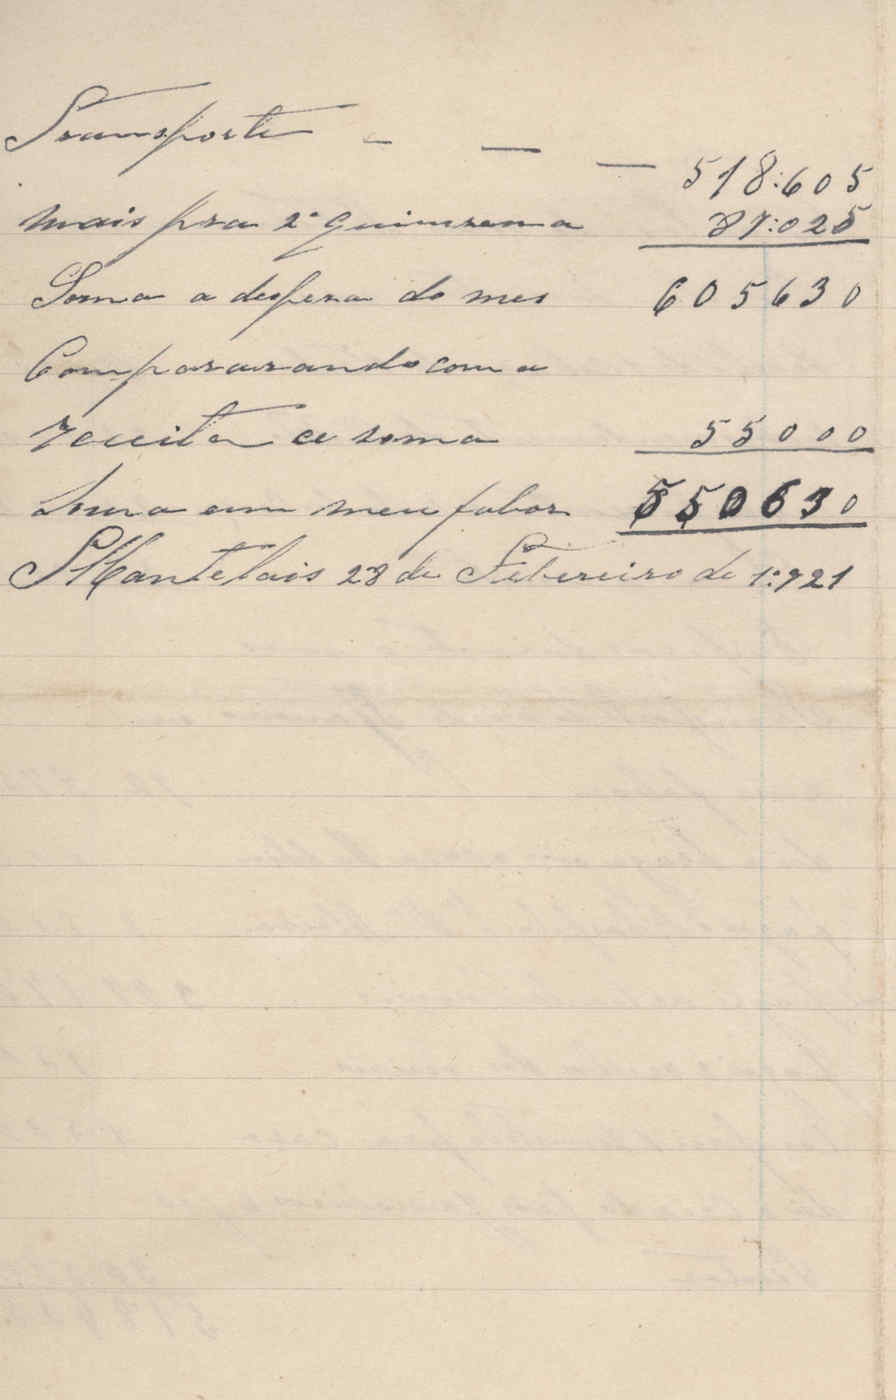 Transporte - - - 518:605
mais pra 2ª Quinzena 87:025
Soma a despeza do mes 605630
Compararando com a
receita a soma 55000
Soma em meu fabor 550630
Mantelais 28 de Febereiro de 1:921